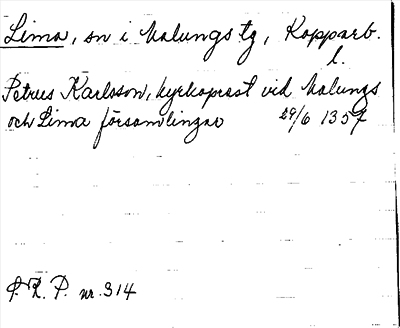 Lima, sn i Malungs tg, Kopparb.
l.
Petrus Karlsson, kyrkoprast vid Malungs
och Lima församlingar 29/6 1357
S. R. P. nr. 314